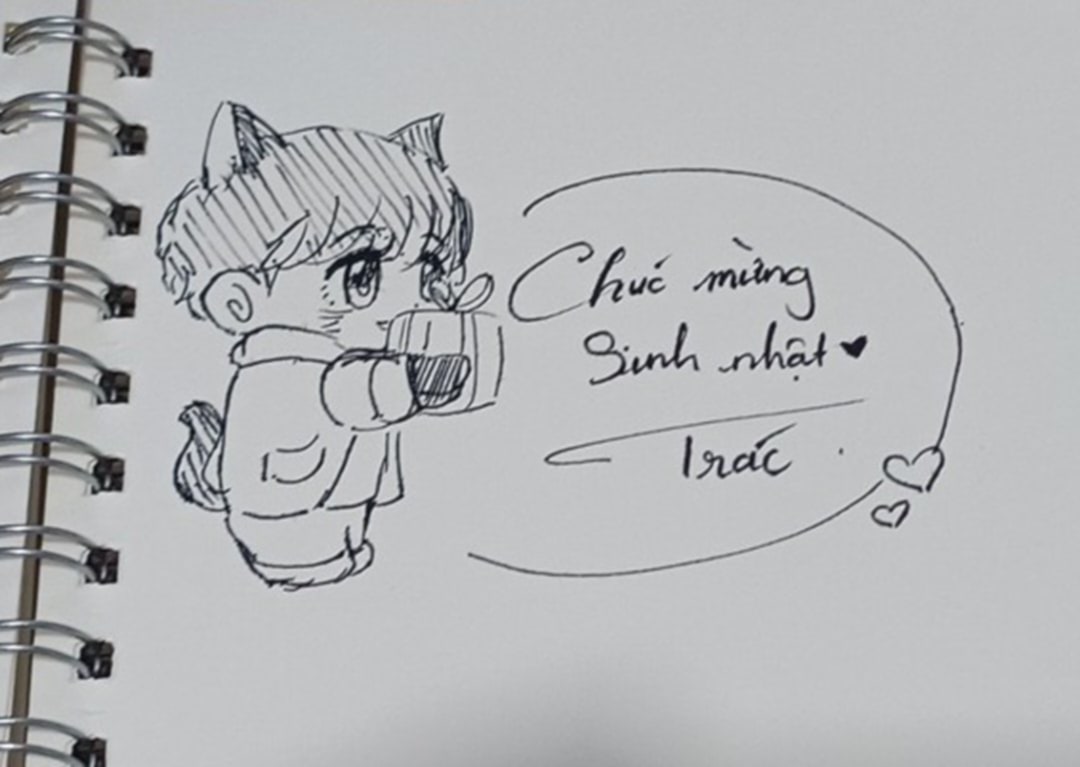 Chúc mừng
Sinh nhật
Trác